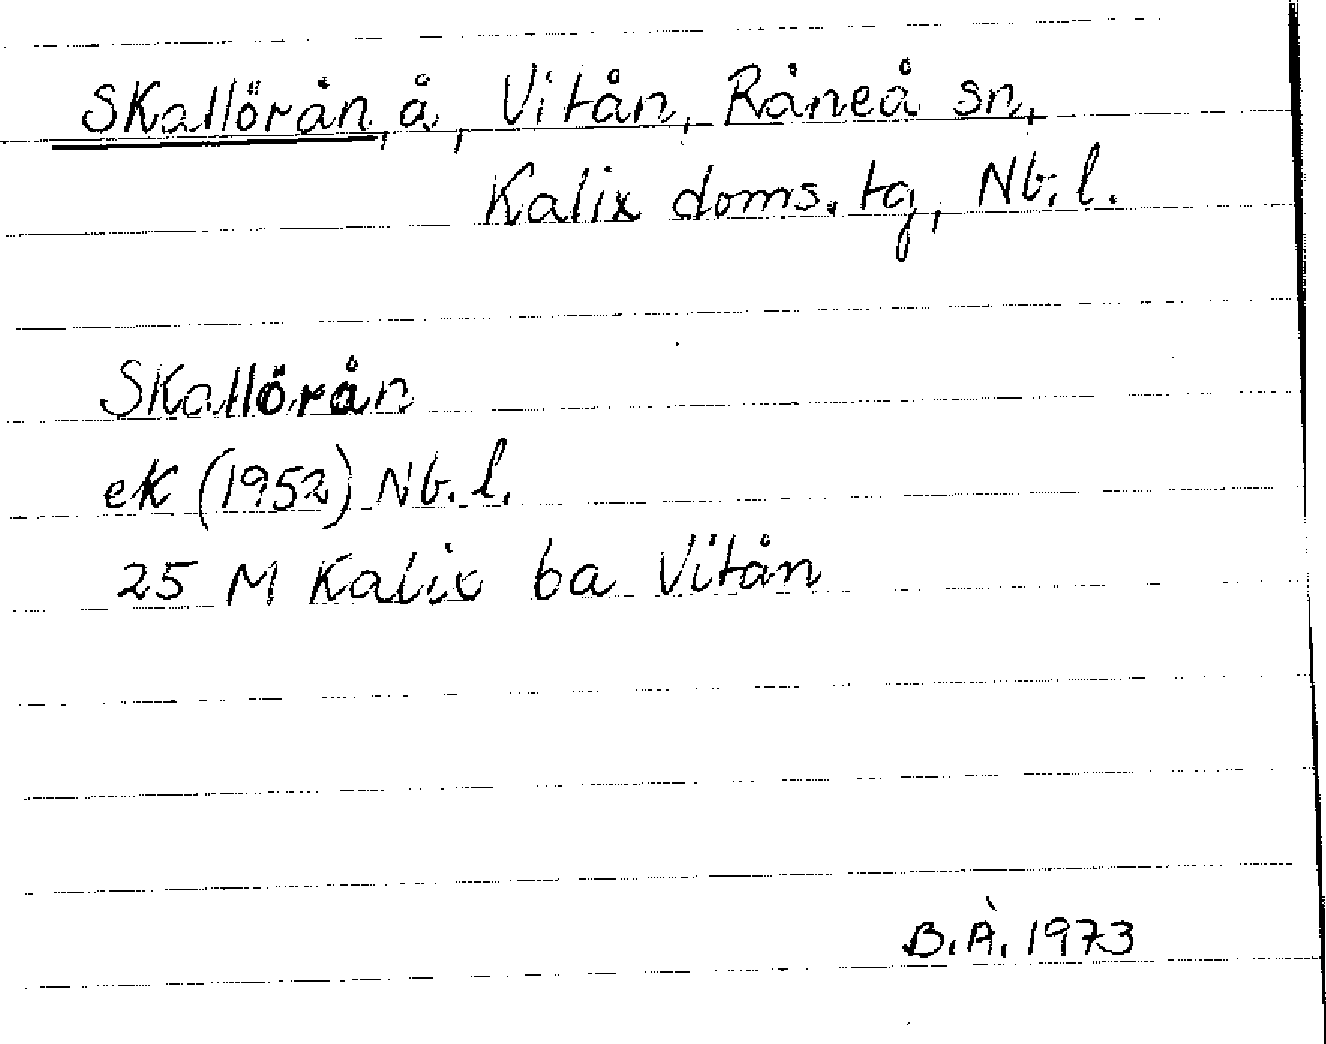 Skallörån, å, Vitån, Råneå sn,
Kalix doms. tg, Nb. l.
Skallörån
ek (1952) Nb. l.
25 M Kalix ba Vitån
B.Å. 1973